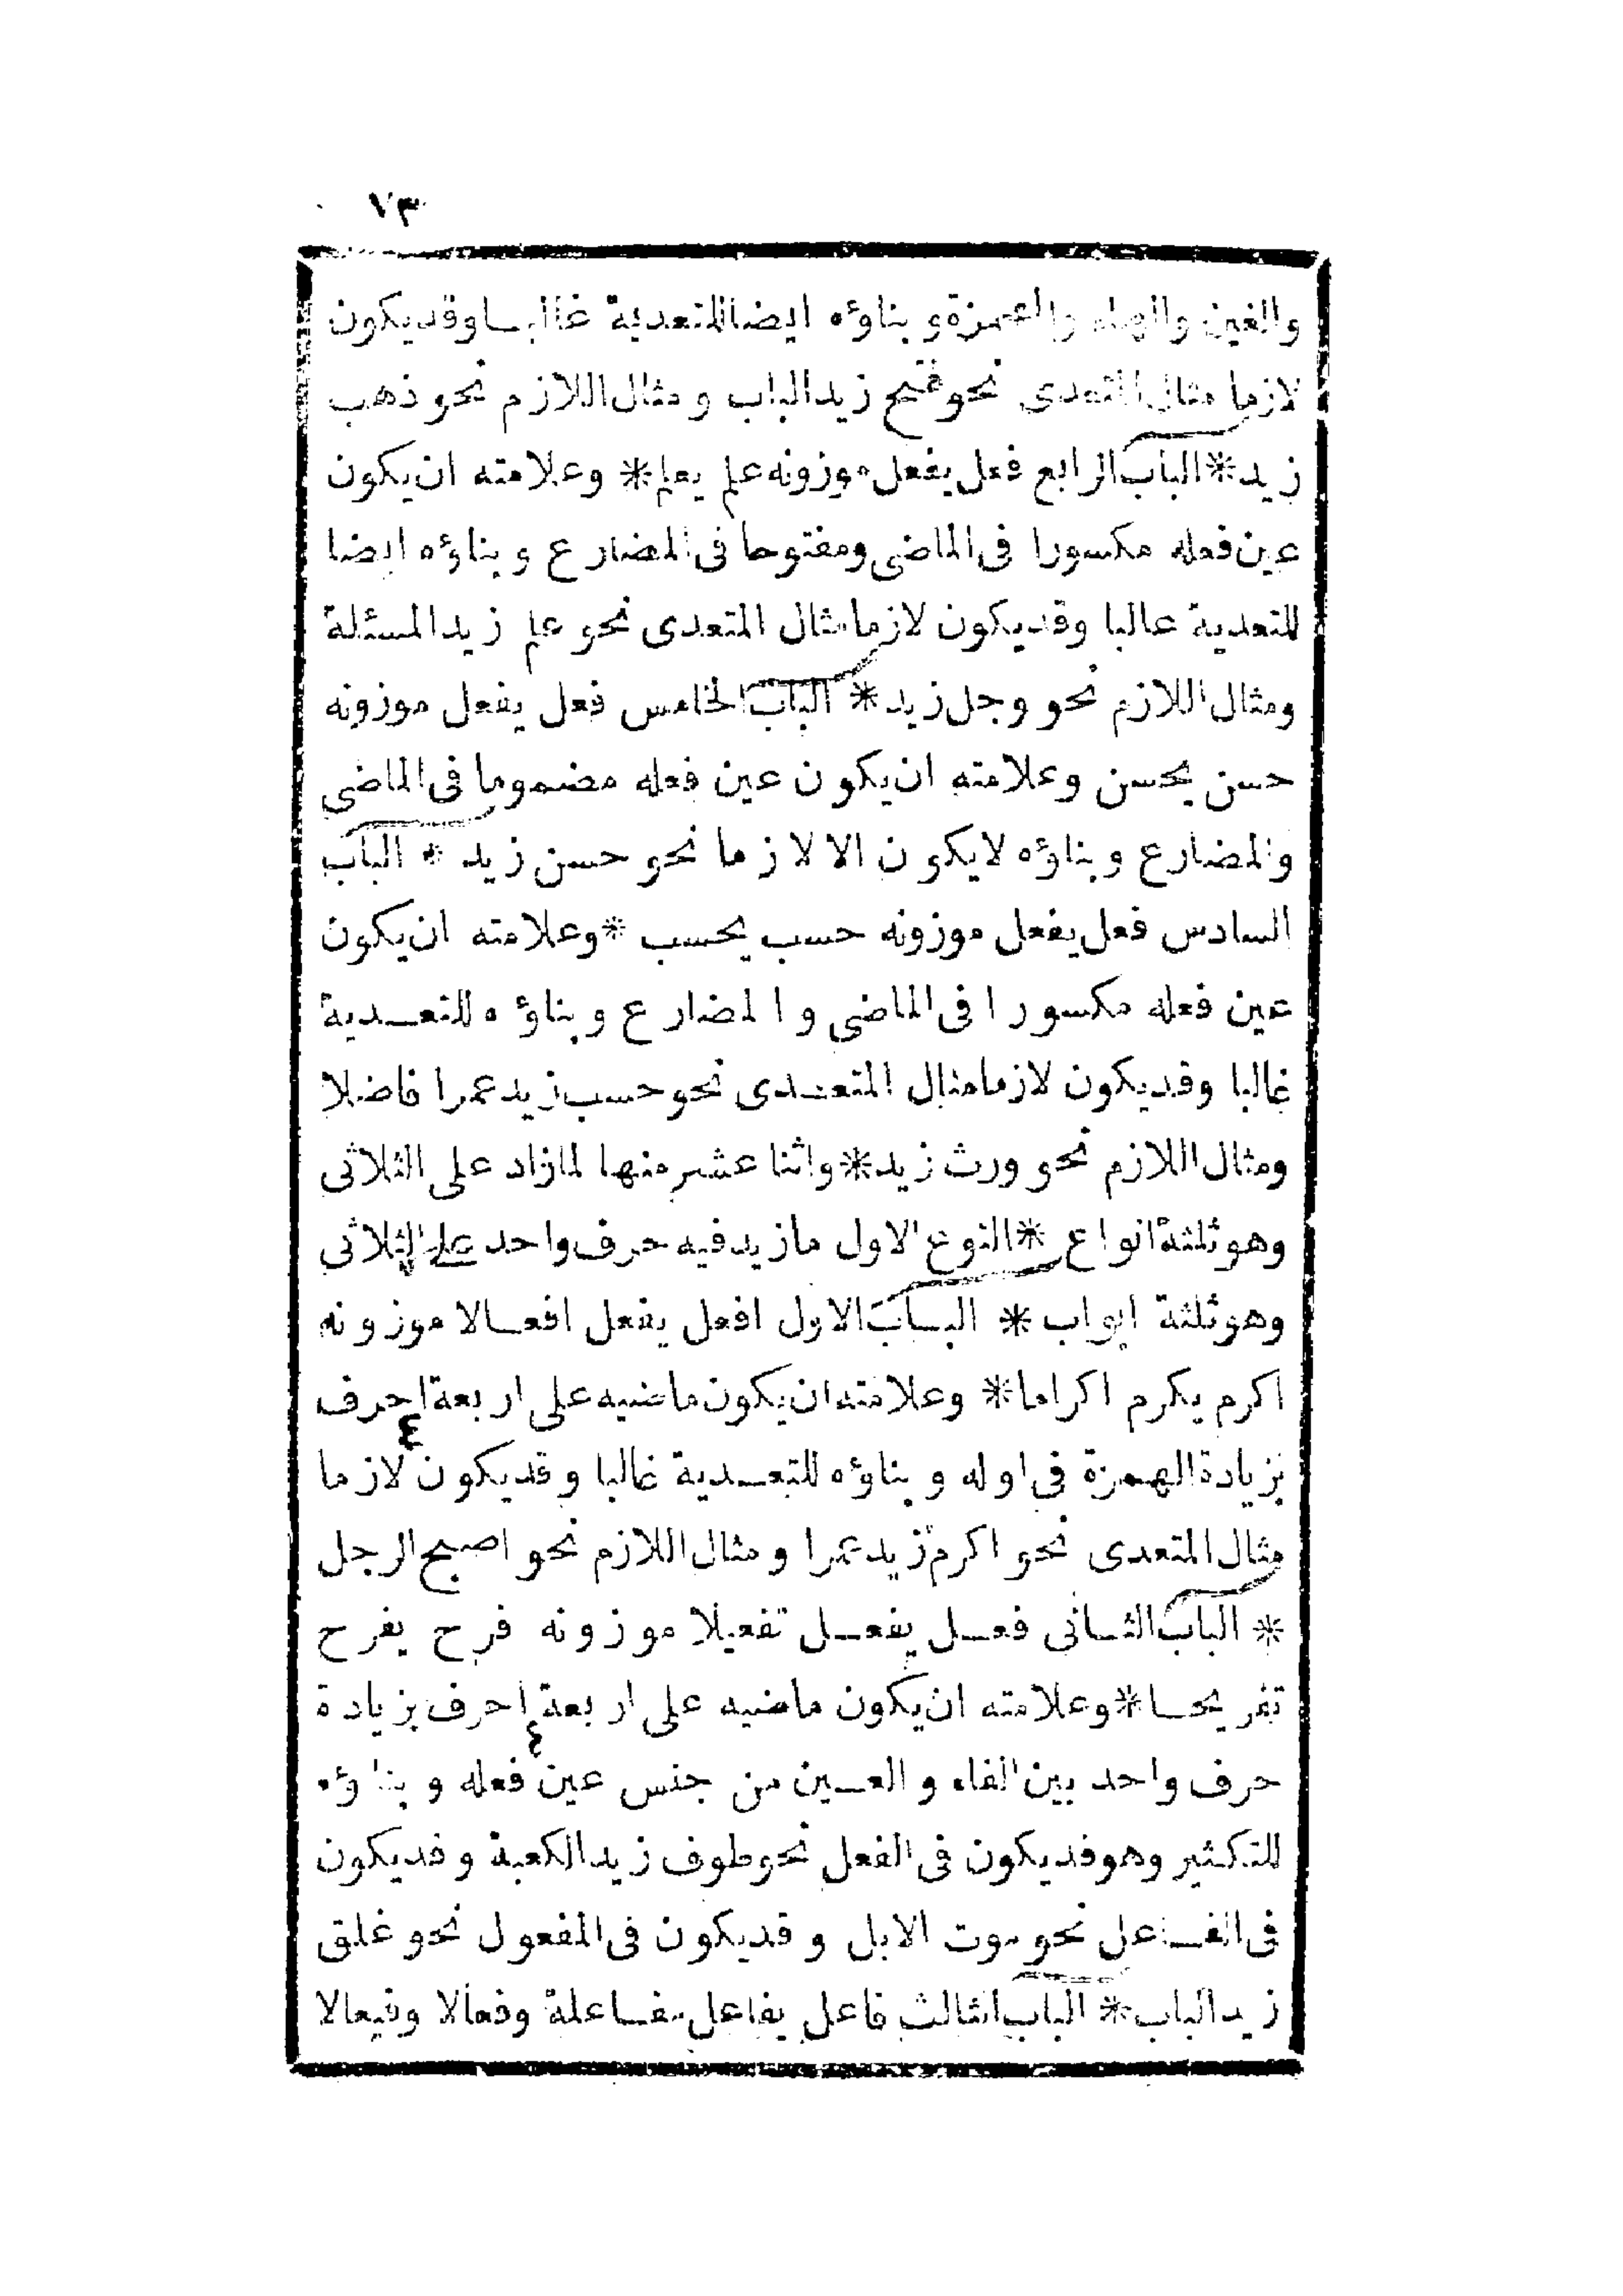 ٧٣
والغين والهاء والهمزة وبناؤه ايضا للتعدية غالبا وقد يكون
لازما مثال المتعدى نحو فتح زيد الباب ومثال اللازم نحو ذهب
زيد * الباب الرابع فعل يفعل موزونه علم يعلم * وعلامته ان يكون
عين فعله مكسورا فى الماضى ومفتوحا فى المضارع وبناؤه ايضا
للتعدية غالبا وقد يكون لازما مثال المتعدى نحو علم زيد المسئلة
ومثال اللازم نحو وجل زيد * الباب الخامس فعل يفعل موزونه
حسن يحسن وعلامته ان يكون عين فعله مضموما فى الماضى
والمضارع وبناؤه لا يكون الا لازما نحو حسن زيد * الباب
السادس فعل يفعل موزونه حسب يحسب * وعلامته ان يكون
عين فعله مكسورا فى الماضى والمضارع وبناؤه للتعدية
غالبا وقد يكون لازما مثال المتعدى نحو حسب زيد عمرا فاضلا
ومثال اللازم نحو ورث زيد * واثنا عشر منها لما زاد على الثلاثى
وهو ثلثة انواع * النوع الاول ما زيد فيه حرف واحد على الثلاثى
وهو ثلثة ابواب * الباب الاول افعل يفعل افعالا موزونه
اكرم يكرم اكراما * وعلامته ان يكون ماضيه على اربعة احرف
بزيادة الهمزة فى اوله وبناؤه للتعدية غالبا وقد يكون لازما
مثال المتعدى نحو اكرم زيد عمرا ومثال اللازم نحو اصبح الرجل
* الباب الثانى فعل يفعل تفعيلا موزونه فرح يفرح
تفريحا * وعلامته ان يكون ماضيه على اربعة احرف بزيادة
حرف واحد بين الفاء والعين من جنس عين فعله وبناؤه
للتكثير وهو قد يكون فى الفعل نحو طوف زيد الكعبة وقد يكون
فى الفاعل نحو موت الابل وقد يكون فى المفعول نحو غلق
زيد الباب * الباب الثالث فاعل يفاعل مفاعلة وفعالا وفيعالا